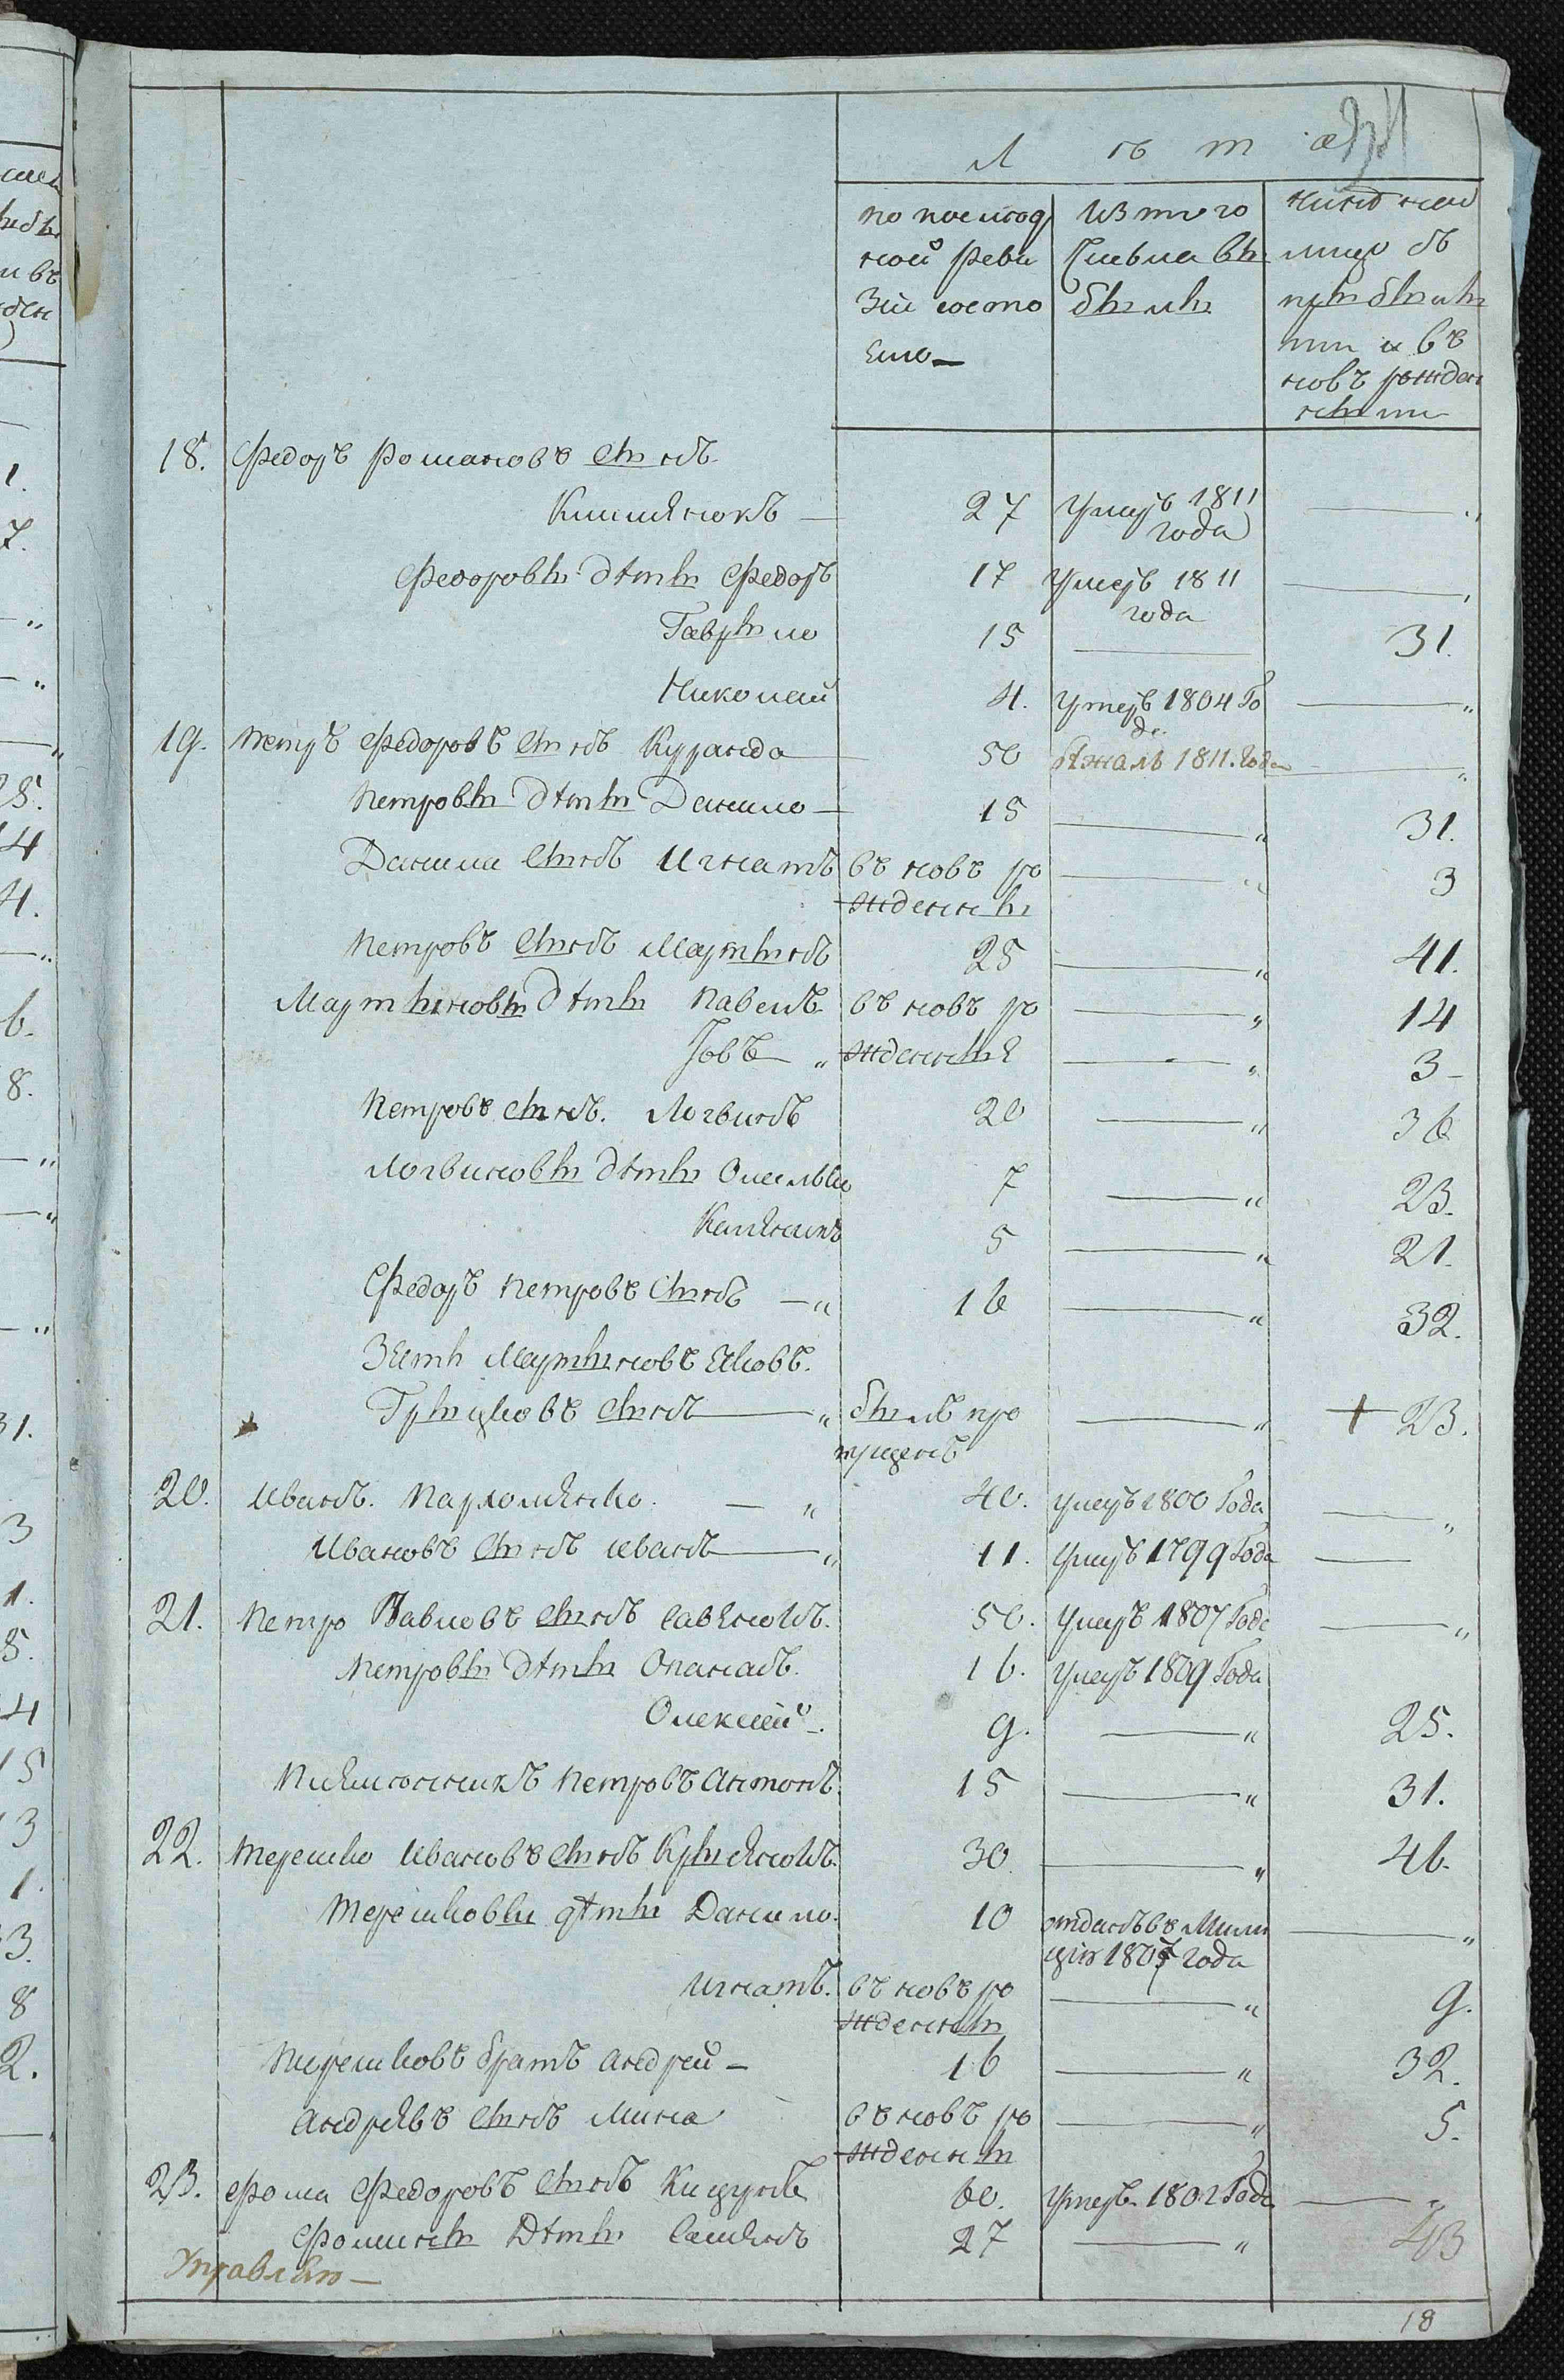 Лѣта
по послод ной реви зіи состо яло —
Изтого Числа вы были
нинѣ нали лицо съ прыбылы ми и въ новъ рожден ными
18. Федоръ Романовъ Сынъ
Климянюкъ — 27 Умеръ 1811 года — „
Федоровы дѣты Федоръ 17 Умеръ 1811 года —
Гаврыло 15 — 31.
Николай 4. Умеръ 1804 Го да. — „
19. Петръ Федоровъ Сынъ Куранда — 50 бѣжалъ 1811. Года — „
Петровы Дѣты Данило — 15 — „ 31.
Данила Сынъ Игнатъ въ новъ ро жденны — „ 3
Петровъ Сынъ Мартынъ 25 — „ 41.
Мартыновы дѣты Павелъ въ новъ ро — „ 14
Іовъ „ жденныя — „ 3 —
Петровъ Сынъ. Логвинъ 20 — „ 36
Логвиновы дѣты Омелько 7 — „ 23.
Каляникъ 5 — „ 21.
Федоръ Петровъ Сынъ — „ 16 — „ 32.
Зять Мартыновъ Яковъ.
Грыцковъ Сынъ — „ былъ про пущенъ — „ + 23.
20. Иванъ. Пархомянко. — „ 40. умеръ 1800 Года — „
Ивановъ Сынъ иванъ — „ 11. Умеръ 1799 Года —
21. Петро Павловъ Сынъ Савянюкъ. 50. Умеръ 1807 Года — „
Петровы дѣты Опанасъ. 16. Умеръ 1809 Года
Олексей —. 9. — „ 25.
Племянникъ Петровъ Антонъ. 15 — „ 31.
22. Терешко Ивановъ Сынъ 30. — „ 46.
Терешковы дѣты Данило. 10 отданъ въ Мили цію 1807 года — „
Игнатъ. въ новъ ро жденны — „ 9.
Терешковъ братъ андрей — 16 — „ 32.
Андрявъ Сынъ Мина въ новъ ро жденны — „ 5.
23. Фома Федоровъ Сынъ 60. Умеръ 1802 Года — „
Фомины Дѣты Самянъ 27 — „ 43
18